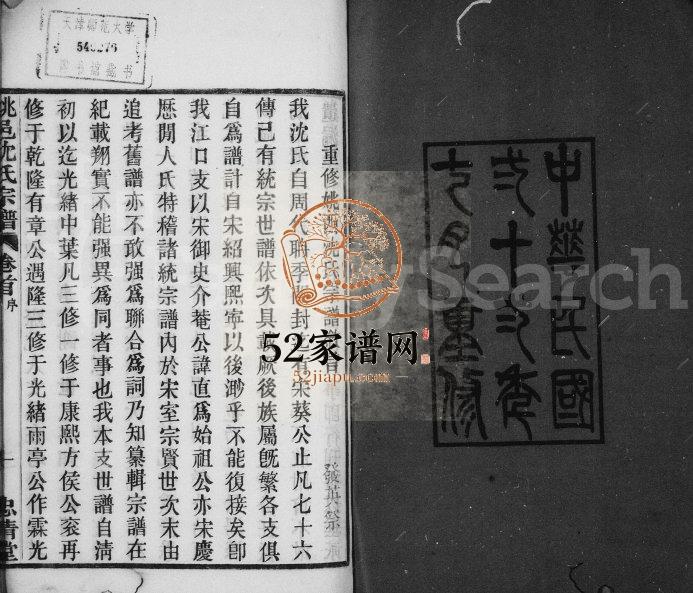 中華民國
弍十弍年
七月重修
重修姚邑沈氏
我沈氏自周代聃季 封 有宋葵公止凡七十六
傳已有統宗世譜依次具載厥後族屬旣繁各支俱
自爲譜計自宋紹興熙寧以後渺乎不能復接矣卽
我江口支以宋御史介菴公諱直爲始祖公亦宋慶
歷閒人氏特稽諸統宗譜內於宋室宗賢世次末由
追考舊譜亦不敢强爲聯合爲詞乃知纂輯宗譜在
紀載翔實不能强異爲同者事也我本支世譜自淸
初以迄光緒中葉凡三修一修于康熙方侯公衮再
修于乾隆有章公遇隆三修于光緒雨亭公作霖光
姚邑沈氏宗譜 卷首 序 一 忠淸堂
天津師范大学
549276
图书馆藏书
52家谱网
52jiapu.com
Search